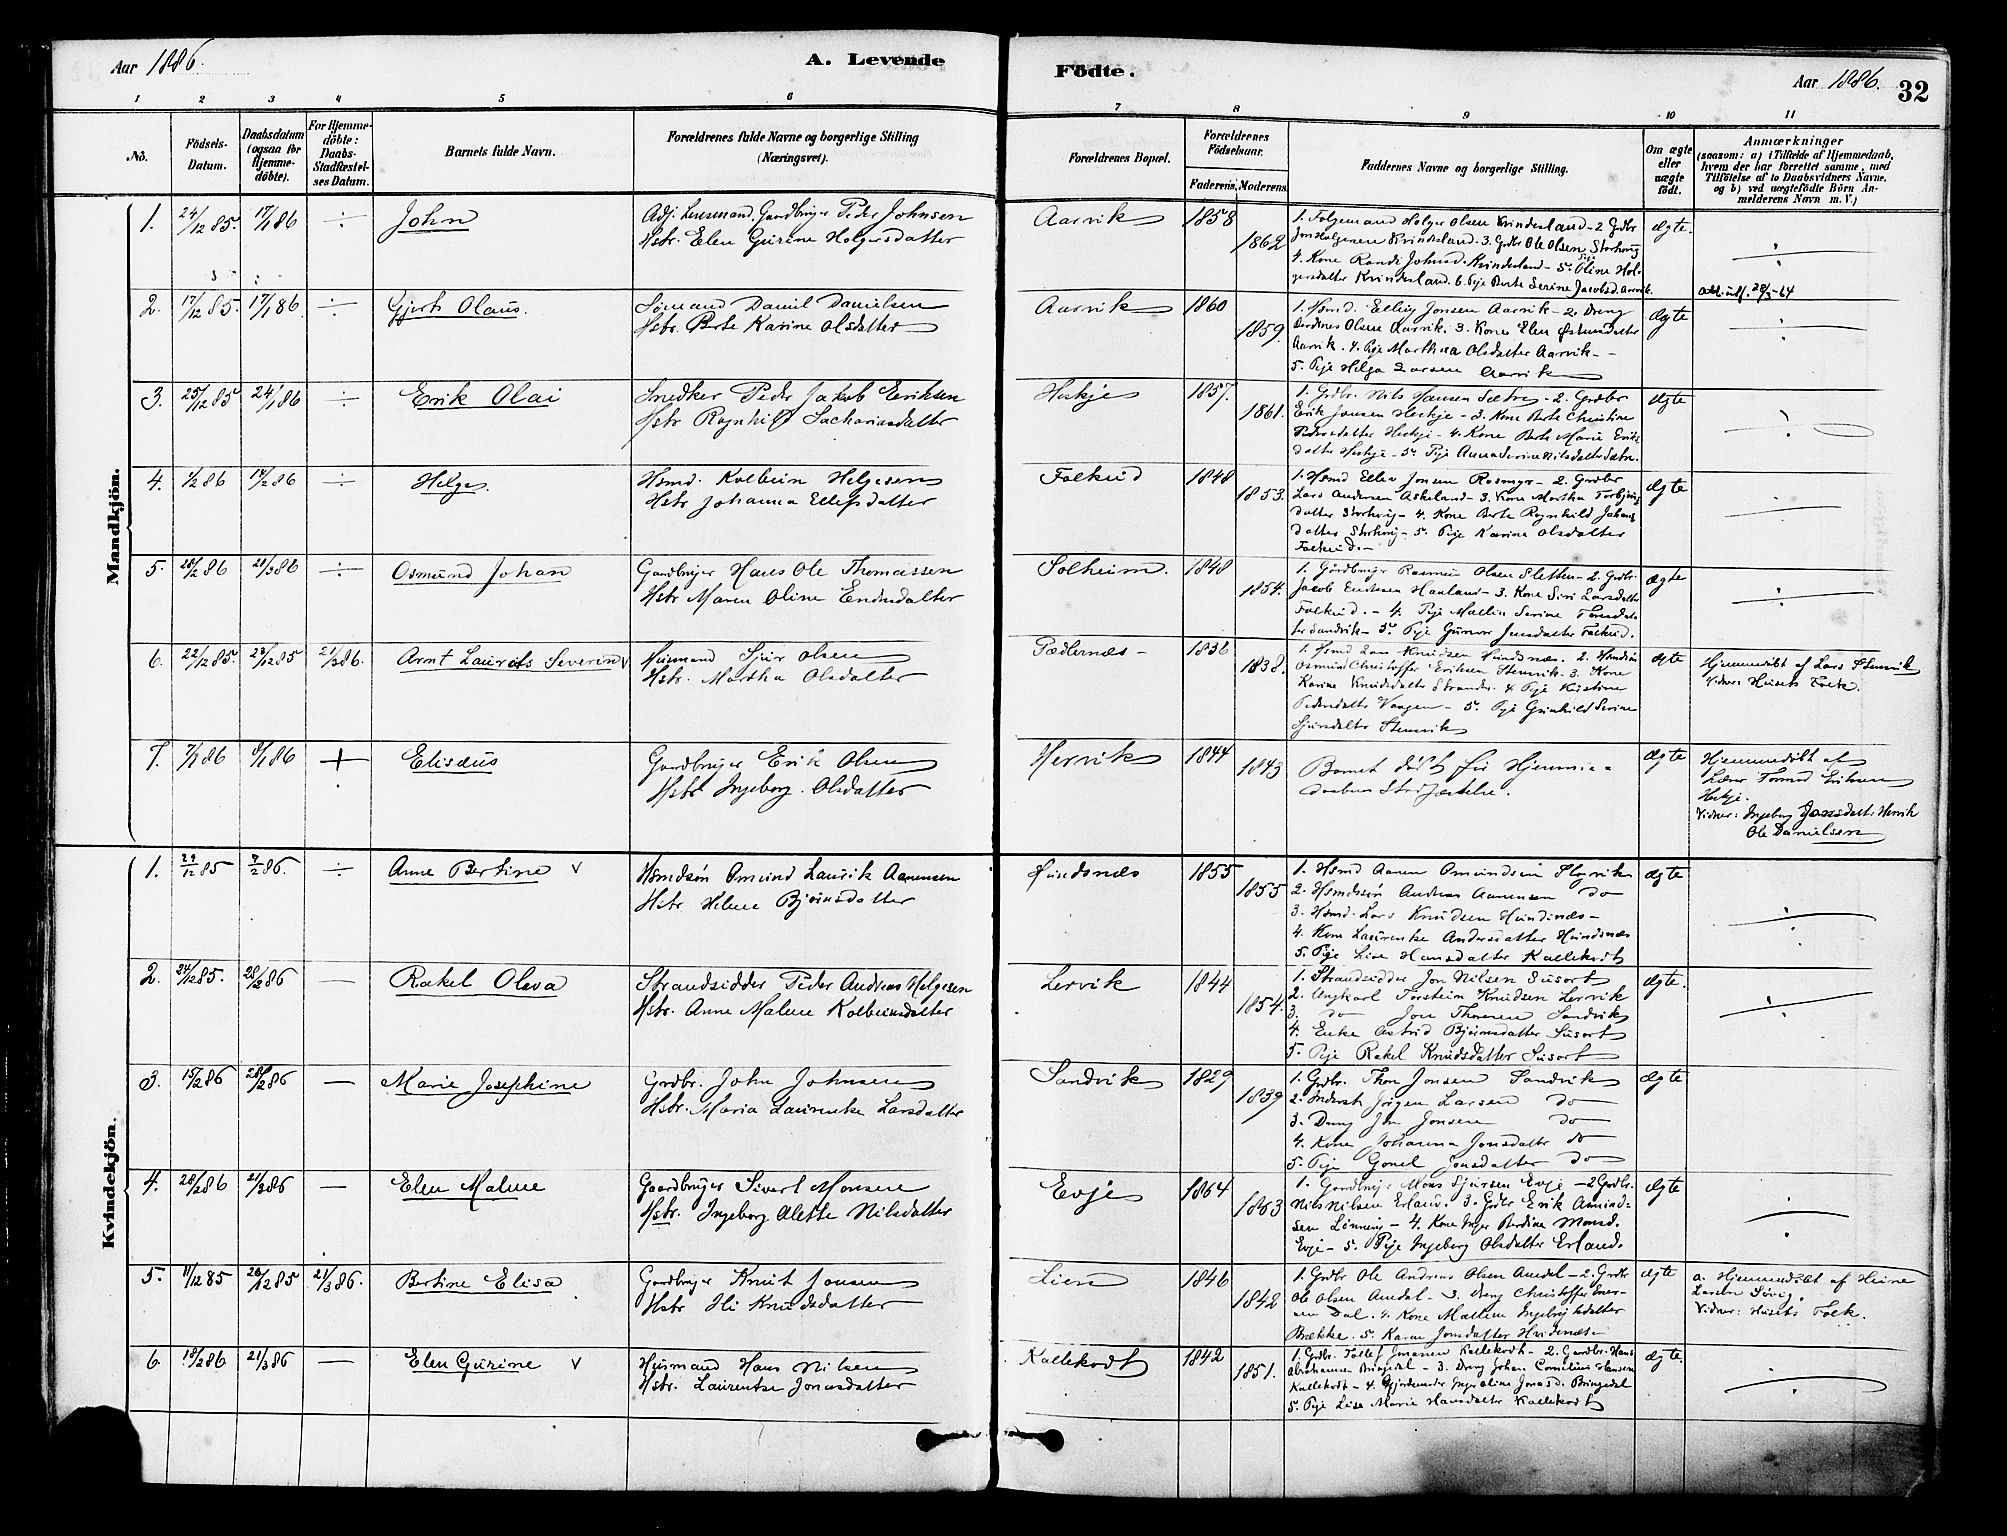 Aar 1886.
A. Levende
Födte.
Aar 1886.
32
1 2 3 4 5 6 7 8 9 10 11
No.
Födsels-Datum.
Daabsdatum (ogsaa for Hjemme-döbte).
For Hjemme-döbte: Daabs-Stadfæstel-ses Datum.
Barnets fulde Navn.
Forældrenes fulde Navne og borgerlige Stilling
(Næringsvei).
Forældrenes Bopæl.
Forældrenes Födselsaar.
Faderens. Moderens.
Faddernes Navne og borgerlige Stilling.
Om ægte eller uægte födt.
Anmærkninger
(saasom: a) i Tilfælde af Hjemmedaab,
hvem der har forrettet samme, med
Tilföielse af to Daabsvidners Navne,
og b) ved uægtefödte Börn An-
melderens Navn m. V.)
Mandkjön.
1. 24/12 85. 17/1 86 ÷ John
Adj. Lensmand, Gaardbruger Peder Johnsen
Hstr. Elen Gurine Holgersdatter
Aarvik 1858 1862
1. Følgemand Holger Olsen Kvindesland - 2. Grdbr
Jon Holgersen Kvindesland. 3. Grdbr Ole Olsen Storhoug
4. Kone Randi Johnsd. Kvindesland - 5. Pige Oline Hol-
gersdatter Kvindesland. 6. Pige Berte Serine Jacobsd. Aarvik.
ægte.
2. 17/12 85. 17/1 86. ÷ Gjert Olaus.
Sömand Daniel Danielsen
Hstr. Berte Karine Olsdatter
Aarvik 1860 1859.
1. Hsmd. Elling Jonsen Aarvik - 2. Dreng
Olsen Aarvik. 3. Kone Elen Østensdatter
Aarvik. 4. Pige Marthea Olsdatter Aarvik -
5. Pige Helga Larsen Aarvik
ægte
3. 25/12 85 24/1 86 ÷ Erik Olai
Snedker Peder Jakob Eriksen
Hstr Ragnhild Sachariasdatter
Heskje 1857. 1861.
1. Grdbr. Nils Hansen Sætre - 2. Grdbr
Erik Jonsen Heskje - 3. Kone Berte Christine
Pedersdatter Heskje - 4. Kone Berte Marie Eriks
datter Heskje - 5. Pige Anna Serine Nilsdatter Sætre.
ægte
4. 1/2 86 14/2 86 ÷ Helge.
Hsmd. Kolbein Helgesen
Hstr Johanna Ellefsdatter
Falkeid 1848 1853.
1. Hsmd Ellev Jonsen Rosmyr - 2. Grdbr
Lars Andersen Askeland - 3. Kone Martha Torbjörns
datter Storhoug - 4. Kone Berte Ragnhild Johans
datter Storhoug - 5. Pige Karina Olsdatter
Falkeid. -
ægte
5. 28/2 86 21/3 86 ÷ Osmund Johan
Gaardbruger Hans Ole Thomassen
Hstr Maren Oline Endresdatter
Solheim. 1848 1854.
1. Gaardbruger Rasmus Olsen Sletten - 2. Grdbr.
Jacob Haaland - 3. Kone Siri Larsdatter
Falkeid. - 4. Pige Malin Serine Tarasdat-
ter Sandvik - 5. Pige Gunvor Jonsdatter Falkeid.
ægte
6. 22/12 85. 23/12 85 21/3 86. Arnt Laurits Severin v
Husmand Sjur Olsen
Hstr. Martha Olsdatter
1836 1838.
1. Hsmd Lars Knudsen Hundsnæs. 2. Hsmdsön
Osmund Christoffer Eriksen Stensvik - 3. Kone
Karine Knudsdatter Strander. 4 Pige Kristine
Pedersdatter Vaagen - 5. Pige Gunhild Serine
Sjursdatter Stensvik
ægte
Hjemmedöbt af Lars Stensvik
Vidner: Husets Folk.
7. 7/1 86 8/1 86 + Elisæus
Gaardbruger Erik Olsen
Hstr Ingeborg Olsdatter
Hervik 1844 1843
Barnet död för Hjemme-
daabens Stadfæstelse.
ægte
Hjemmedöbt af
Lærer Tormod Eriksen
Heskje.
Vidner: Ingeborg Jonsdatter Hervik
Ole Danielsen
Kvindekjön.
1. 29/12 85 7/2 86. ÷ Anne Bertine v
Hsmdsön Omund Laurik Aanensen
Hstr Helene Björnsdatter
Hundsnæs 1855 1855
1. Hsmd Aanen Omundsen
2. Hsmdssön Andreas Aanensen do
3. Hsmd. Lars Knudsen Hundsnæs -
4. Kone Laurentse Andersdatter Hundsnæs
5. Pige Lise Hansdatter Kallekodt
ægte
2. 24/12 85. 28/2 86 — Rakel Olava
Strandsidder Peder Andreas Helgesen
Hstr. Anne Malene Kolbeinsdatter
Lervik 1844 1854.
1. Strandsidder Jon Nilsen Susort
2. Ungkarl Torstein Knudsen Lervik
3. do Jon Thoresen Sandvik
4. Enke Astrid Bjöensdatter Susort
5. Pige Rakel Knudsdatter Susort
ægte.
3. 15/2 86 28/2 86 — Marie Josephine
Grdbr. John Johnsen
Hstr. Maria Laurentse Larsdatter
Sandvik 1829 1839
1. Grdbr. Thor Jonsen Sandvik
2. Inderst Jörgen Larsen do
3. Dreng Jon Jonsen do
4. Kone Johanna Jonsdatter do
5. Pige Gonel Jonsdatter do
ægte
4. 28/2 86 21/3 86 — Elen Malene
Gaardbruger Sivert Monsen
Hstr. Ingeborg Alette Nilsdatter
Evje 1864 1863
1. Gaardbruger Mons Sjursen Evje - 2 Grdbr.
Nils Nilsen Erland. 3. Grdbr Erik Asmund-
sen Lönning - 4. Kone Inger Berdine Monsd.
Evje - 5. Pige Ingeborg Olsdatter Erland.
ægte
5. 11/12 85 20/12 85 21/3 86. Bertine Elisa
Gaardbruger Knut Jonsen
Hstr Ili Knudsdatter
Lien 1846 1842
1. Grdbr Ole Andreas Olsen Amdal - 2. Grdbr
Ole Olsen Amdal - 3. Dreng Christoffer Iver-
sen Dal. 4. Kone Malene Ingebrigtsdatter
Brække. 5. Karen Jonsdatter Hvidenæs -
ægte
a. Hjemmedöbt af Heine
Larsen
Vidner: Husets Folk.
6. 18/2 86 21/3 86 — Elen Gurine v
Husmand Hans Nilsen
Hstr. Laurentse Jonasdatter
Kallekodt 1842 1851.
1. Grdbr. Tollef Jonasen Kallekodt - 2. Gaardbr. Hans
Abrahamsen Bringedal - 3. Dreng Johan Cornelius Hansen
Kallekodt - 4. Ingeroline Jonasd. Bringedal
5. Pige Lise Marie Hansdatter Kallekodt
ægte.